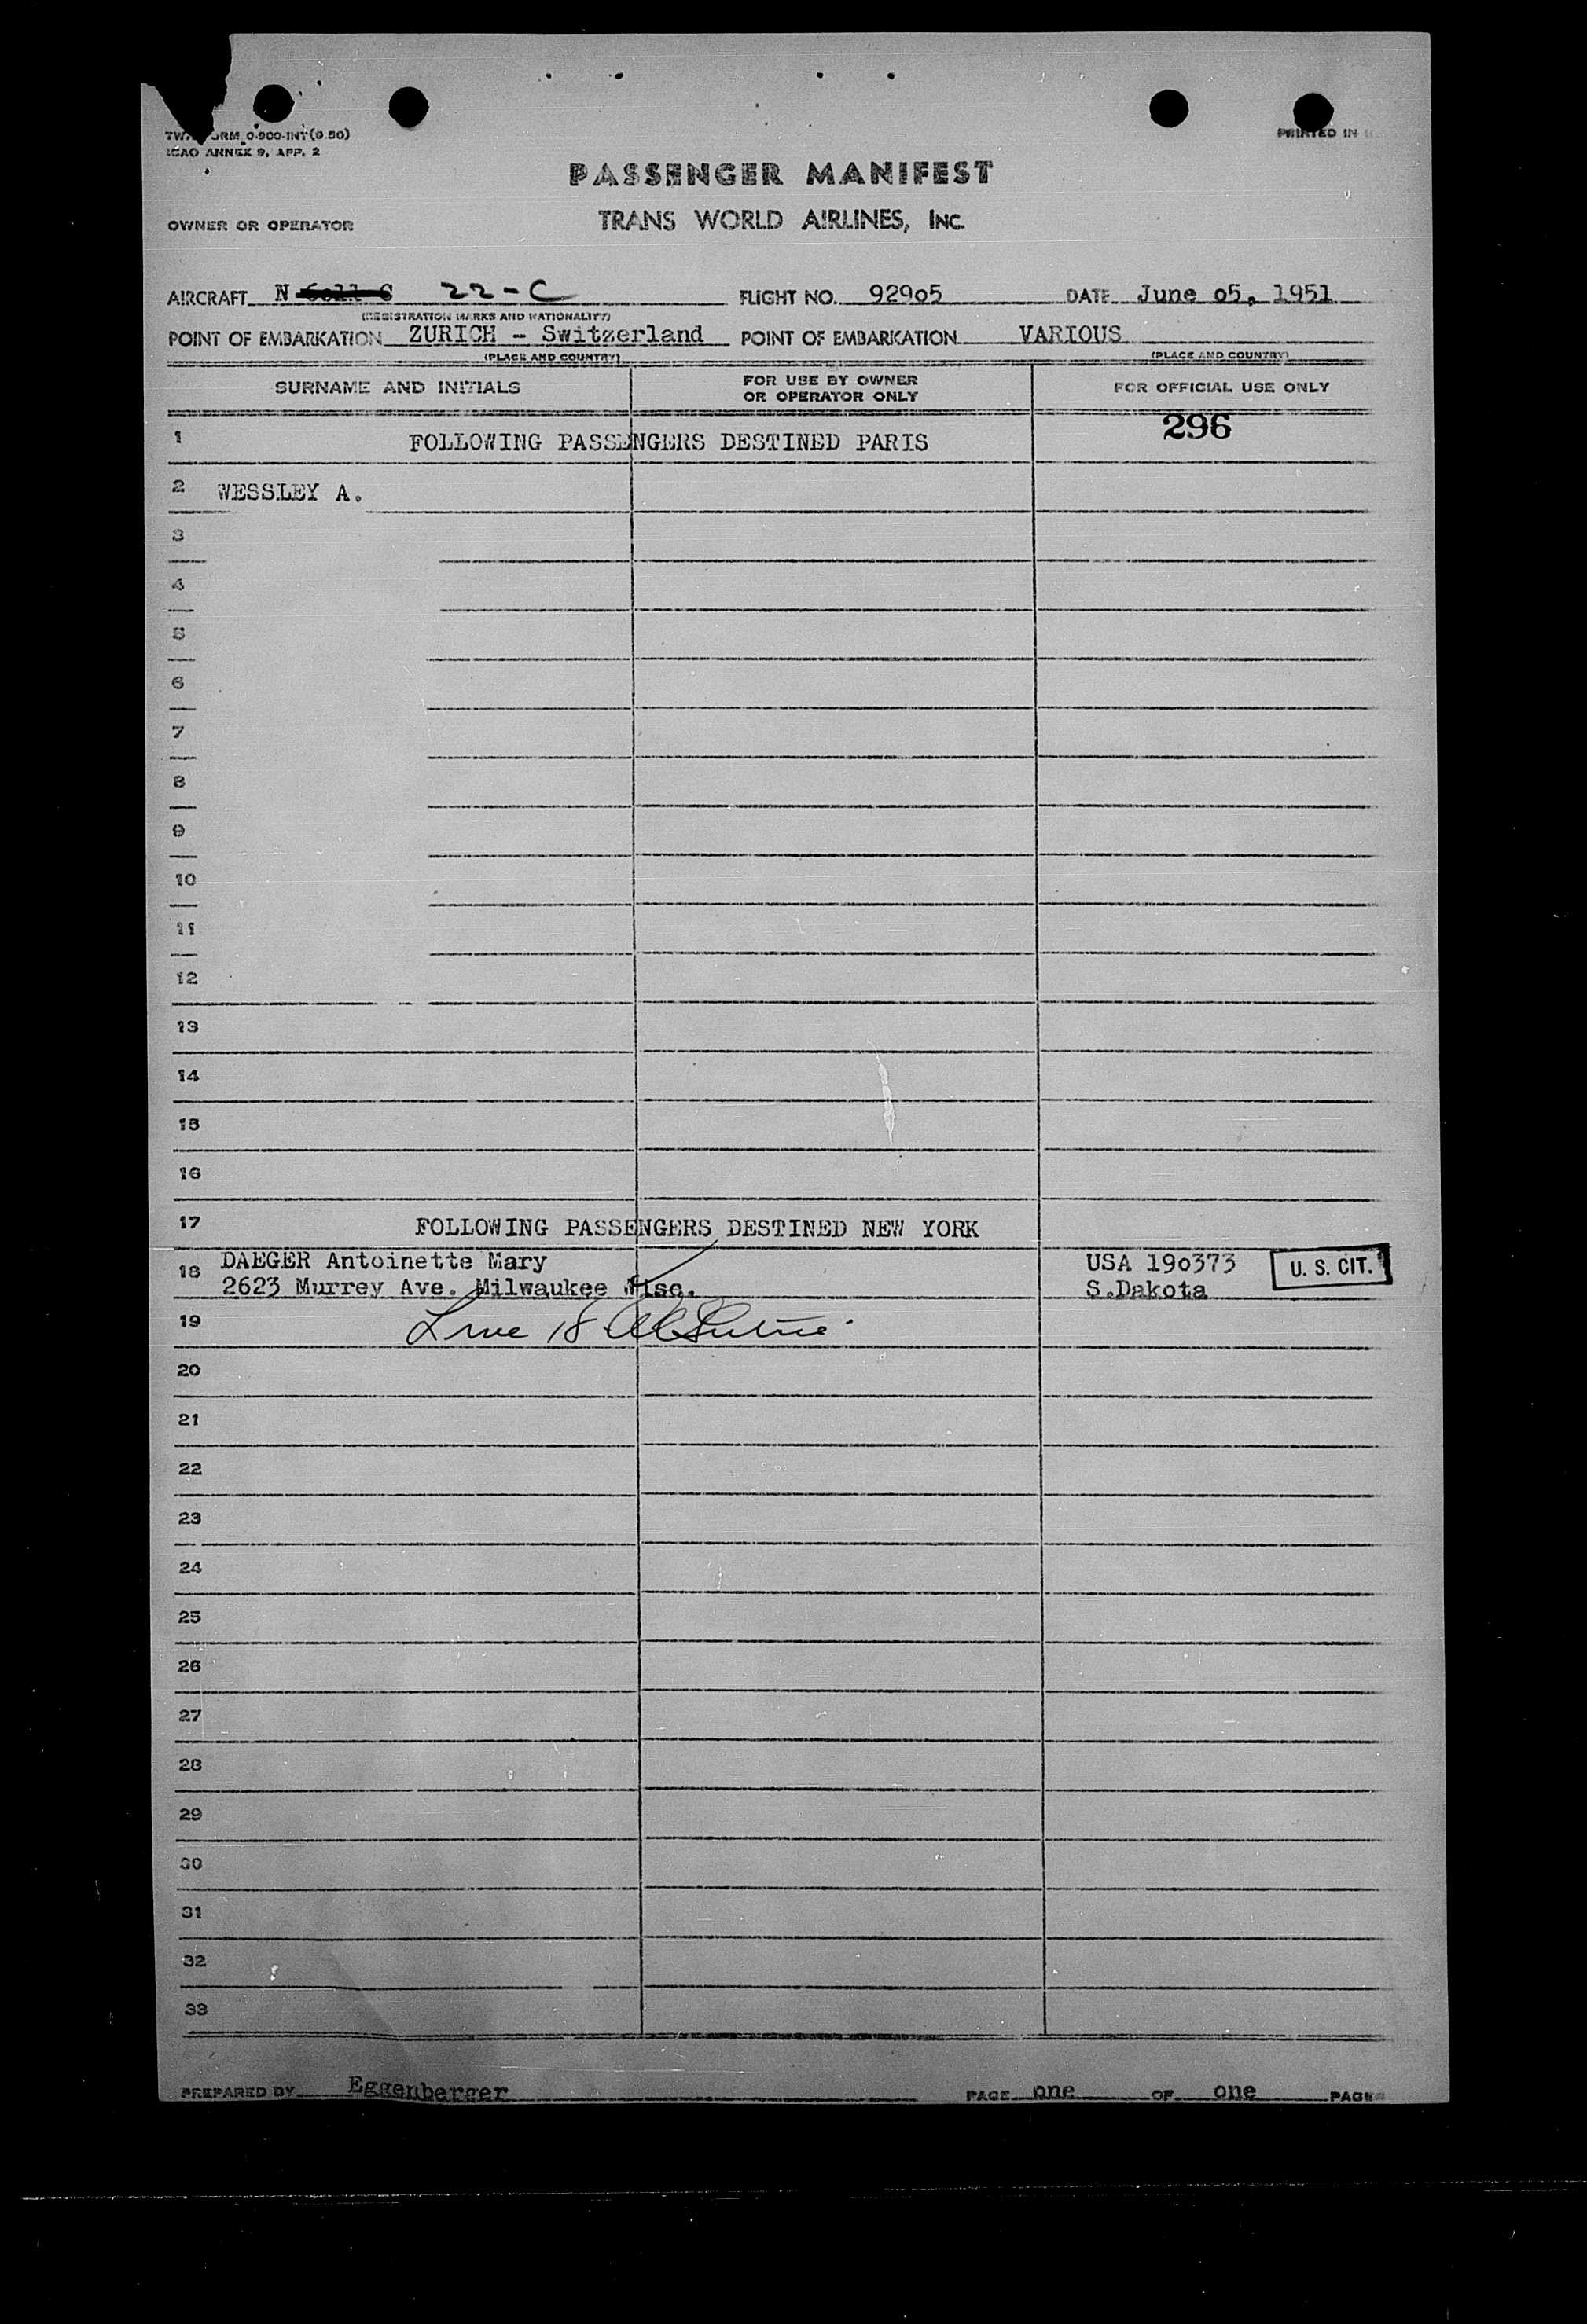 TWA FORM 0-900-INT (9.50)
ICAO ANNEX 9, APP. 2
PRINTED IN
PASSENGER MANIFEST
OWNER OR OPERATOR TRANS WORLD AIRLINES, INC.
AIRCRAFT N 22-C FLIGHT NO. 92905 DATE June 05, 1951
(REGISTRATION MARKS AND NATIONALITY)
POINT OF EMBARKATION ZURICH - Switzerland POINT OF EMBARKATION VARIOUS
(PLACE AND COUNTRY) (PLACE AND COUNTRY)
SURNAME AND INITIALS FOR USE BY OWNER OR OPERATOR ONLY FOR OFFICIAL USE ONLY
296
1 FOLLOWING PASSENGERS DESTINED PARIS
2 WESSLEY A.
3
4
5
6
7
8
9
10
11
12
13
14
15
16
17 FOLLOWING PASSENGERS DESTINED NEW YORK
18 DAEGER Antoinette Mary USA 190373 U. S. CIT.
2623 Murrey Ave. Milwaukee Wisc. S.Dakota
19 Line 18
20
21
22
23
24
25
26
27
28
29
30
31
32
33
PREPARED BY Eggenberger PAGE one OF one PAGES